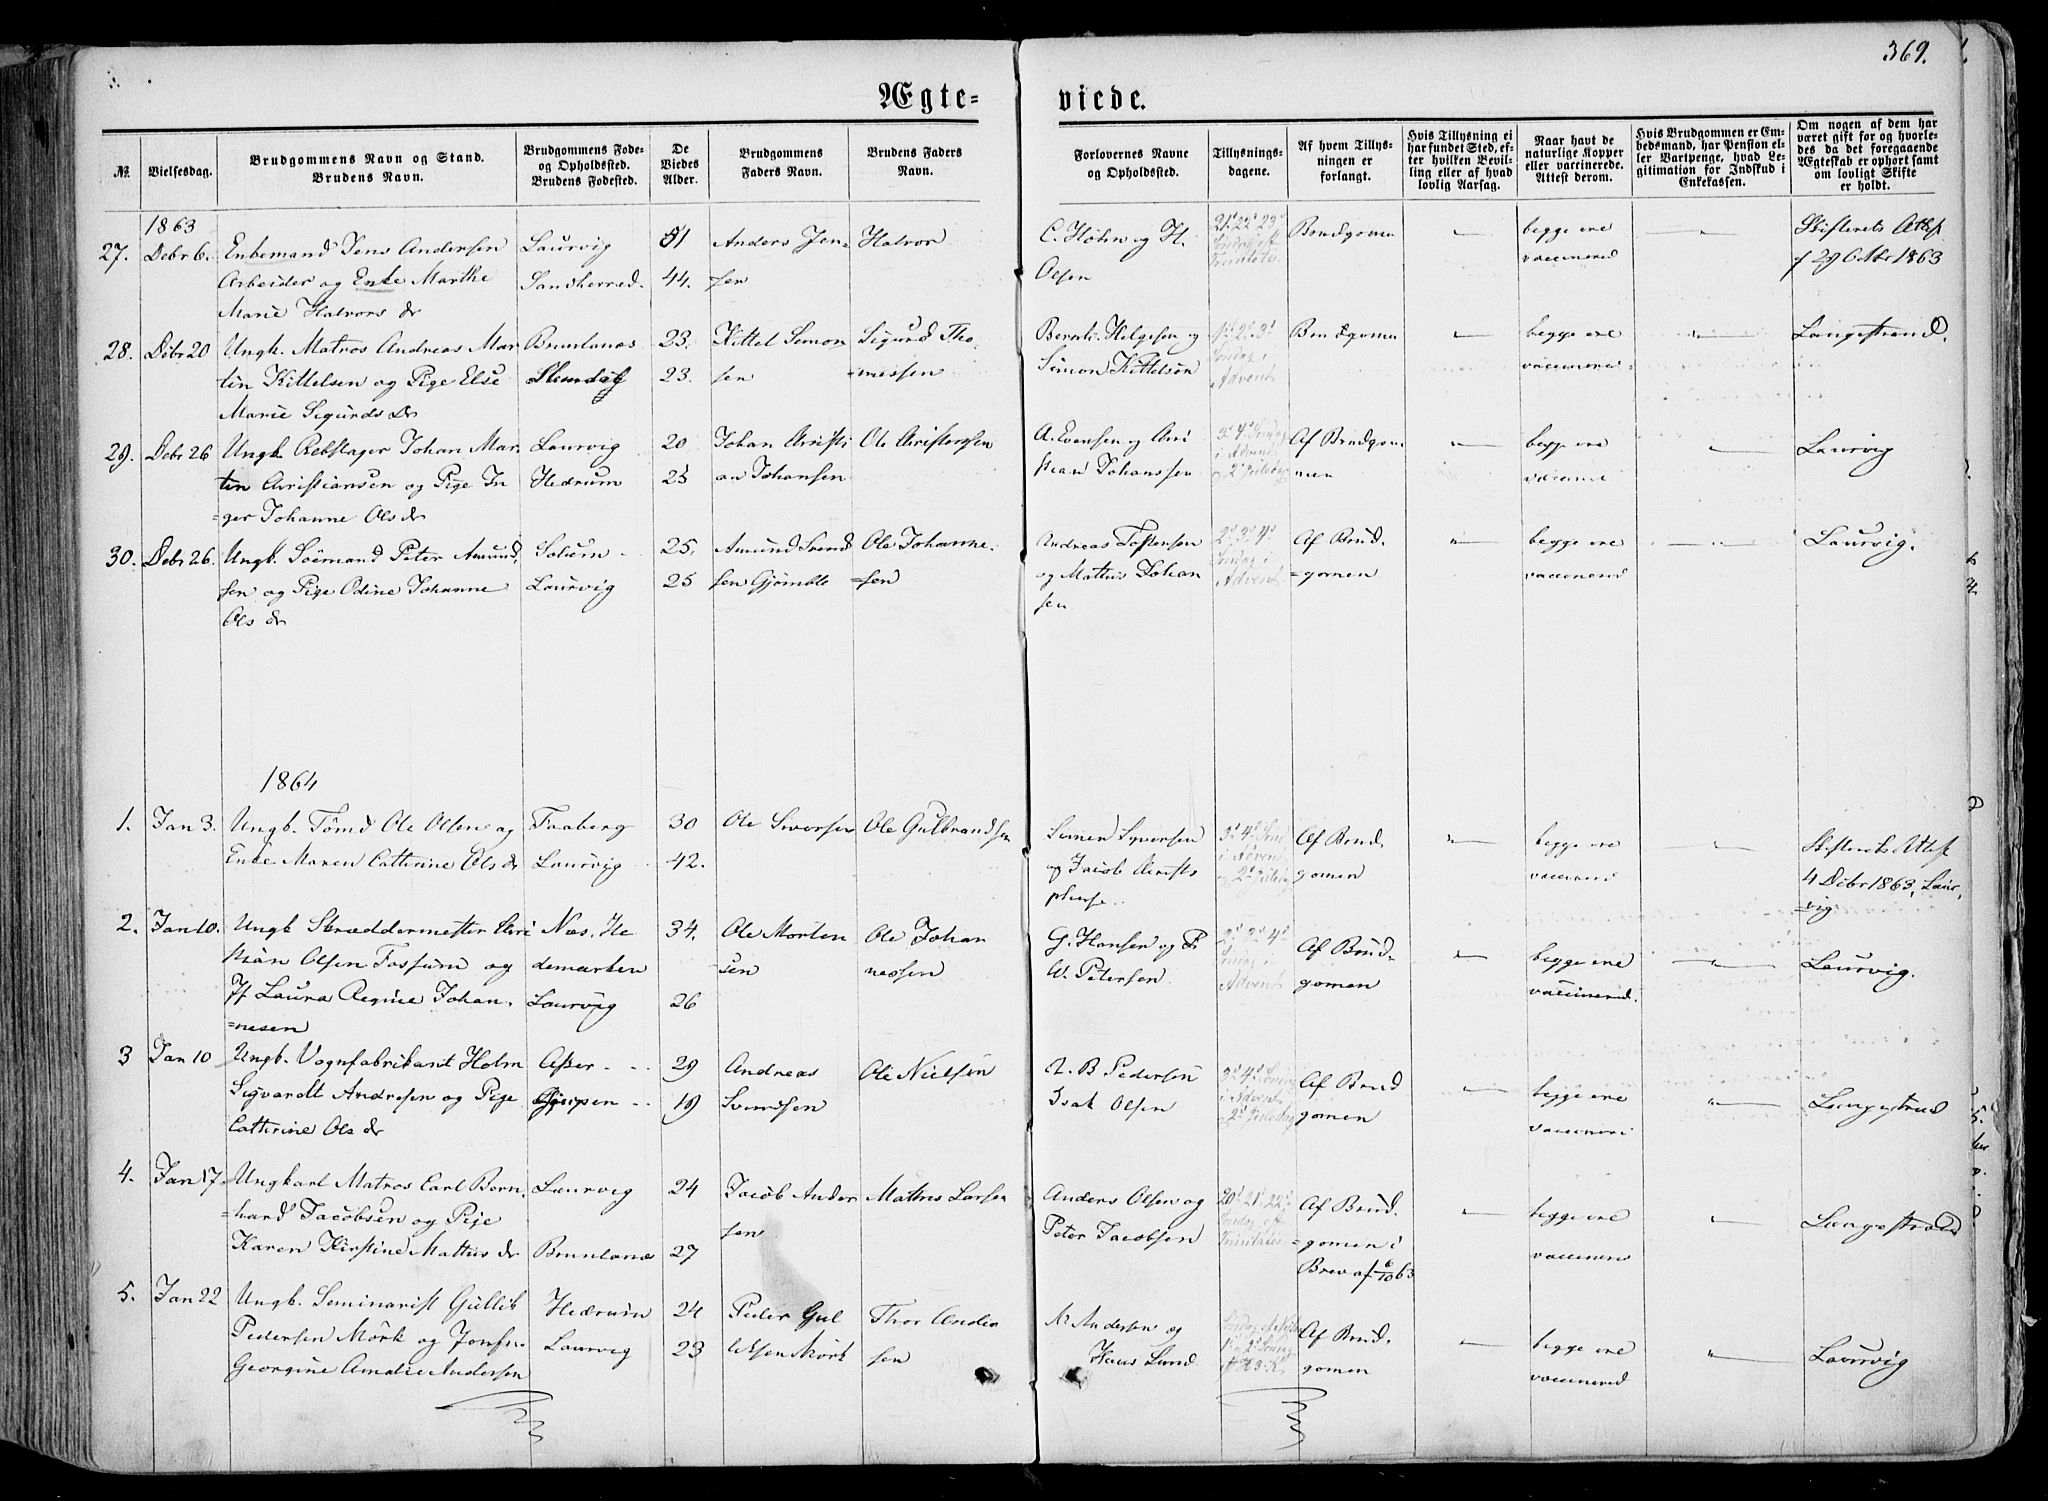 369.
Ægteviede.
№.
Vielsesdag.
Brudgommens Navn og Stand.
Brudens Navn.
Brudgommens Føde-
og Opholdssted.
Brudens Fødested.
De
Viedes
Alder.
Brudgommens
Faders Navn.
Brudens Faders
Navn.
Forlovernes Navne
og Opholdssted.
Tillysnings-
dagene.
Af hvem Tillys-
ningen er
forlangt.
Hvis Tillysning ei
har fundet Sted, ef-
ter hvilken Bevil-
ling eller af hvad
lovlig Aarsag.
Naar havt de
naturlige Kopper
eller vaccinerede.
Attest derom.
Hvis Brudgommen er Em-
bedsmand, har Pension el-
ler Vartpenge, hvad Le-
gitimation for Indskud i
Enkekassen.
Om nogen af dem har
været gift før og hvorle-
des da det foregaaende
Ægteskab er ophørt samt
om lovligt Skifte
er holdt.
1863
27.
Debr 6.
Enkemand Jens Andersen
Arbeider og Enke Marthe
Marie Halvors dr
Laurvig
Sandherred.
51
44.
Anders Jen-
sen
Halvor
C. Høhn og H.
Olsen
21' 22' 23'
Søndag eft
Trinitatis
Brudgomen
begge ere
vaccinered
Skifterets Attest
29 Octbr 1863
28.
Debr 20
Ungk. Matros Andreas Mar
tin Kittelsen og Pige Else
Marie Sigurds dr
Brunlanæs
23.
23.
Kittel Simon
sen
Sigurd Tho-
=massen
Bernt Helgesen og
Simon Kittelsen
1' 2' 3'
Søndag i
Advent
Brudgomen
begge ere
vaccinered
Langestrand.
29.
Debr 26
Ungk. Rebslager Johan Mar
tin Christiansen og Pige In
=ger Johanne Ols dr
Laurvig
Hedrum
20
25
Johan Christi
an Johansen
Ole Christensen
A. Evensen og Chri
stian Johanssen
3' 4' Søndag
i Advent
og 2' Juledag
Af Brudgom
men
begge ere
vaccinered
Laurvig
30.
Debr 26.
Ungk. Sömand Peter Amund
sen og Pige Odine Johanne
Ols dr
Solum
Laurvig
25.
25
Amund Svend
sen Gjømble
Ole Johanne-
=sen
Andreas Tostensen
og Mathis Johan
sen
2' 3' 4'
Søndag i
Advent
Af Brud-
=gomen
begge ere
vaccinered
Laurvig.
1864
1.
Jan 3.
Ungk. Tömd Ole Olsen og
Enke Maren Cathrine Ols dr
Faaberg
Laurvig
30
42.
Ole Siversen
Ole Gulbrandsen
Simen Syversen
og Jacob Christo
phersen.
3' 4' Søndag
i Advent
og 2' Juledag
Af Brud-
gomen
begge ere
vaccinered
Skifterets Attest
4 Debr 1863, Laur-
vig
2.
Jan 10.
Ungk Skræddermester Chri
stian Olsen Fossum og
Jf Laura Regine Johan-
=nesen
Næs, He
demarken
Laurvig
34.
26
Ole Morten
-sen
Ole Johan
nessen
G. Hansen og P
W. Petersen
2' 3' 4'
Søndag i
Advent
Af Brud-
gomen
begge ere
vaccinered.
Laurvig.
3
Jan 10
Ungk. Vognfabrikant Holm
Sigvardt Andresen og Pige
Cathrine Ols dr
Asker
Gjerpen
29
19
Andreas
Svendsen
Ole Nielsen
B Pedersen
Isak Olsen
3' 4' Søndag
i Advent
2' Juledag
Af Brud
gomen
begge ere
vaccinered
Langestrand
4.
Jan 17.
Ungkarl Matros Carl Bern
=hard Jacobsen og Pige
Karen Kirstine Mathis dr
Laurvig
Brunlanæs
24
27
Jacob Ander
sen
Mathis Larsen
Anders Olsen og
Peter Jacobsen
20' 21' 22'
Søndag eft
Trinitatis
Af Brud-
=gomen i
Brev af 6/10 63
begge ere
vaccinered
Langestrand
5.
Jan 22
Ungk. Seminarist Gullik
Pedersen Mörk og Jomfru
Georgine Amalie Andersen
Hedrum
Laurvig
24
23
Peder Gul
liksen Mörk
Thor Ander
sen
N. Andersen og
Hans Lund
Af Brud-
gomen
begge ere
vaccinered
Laurvig